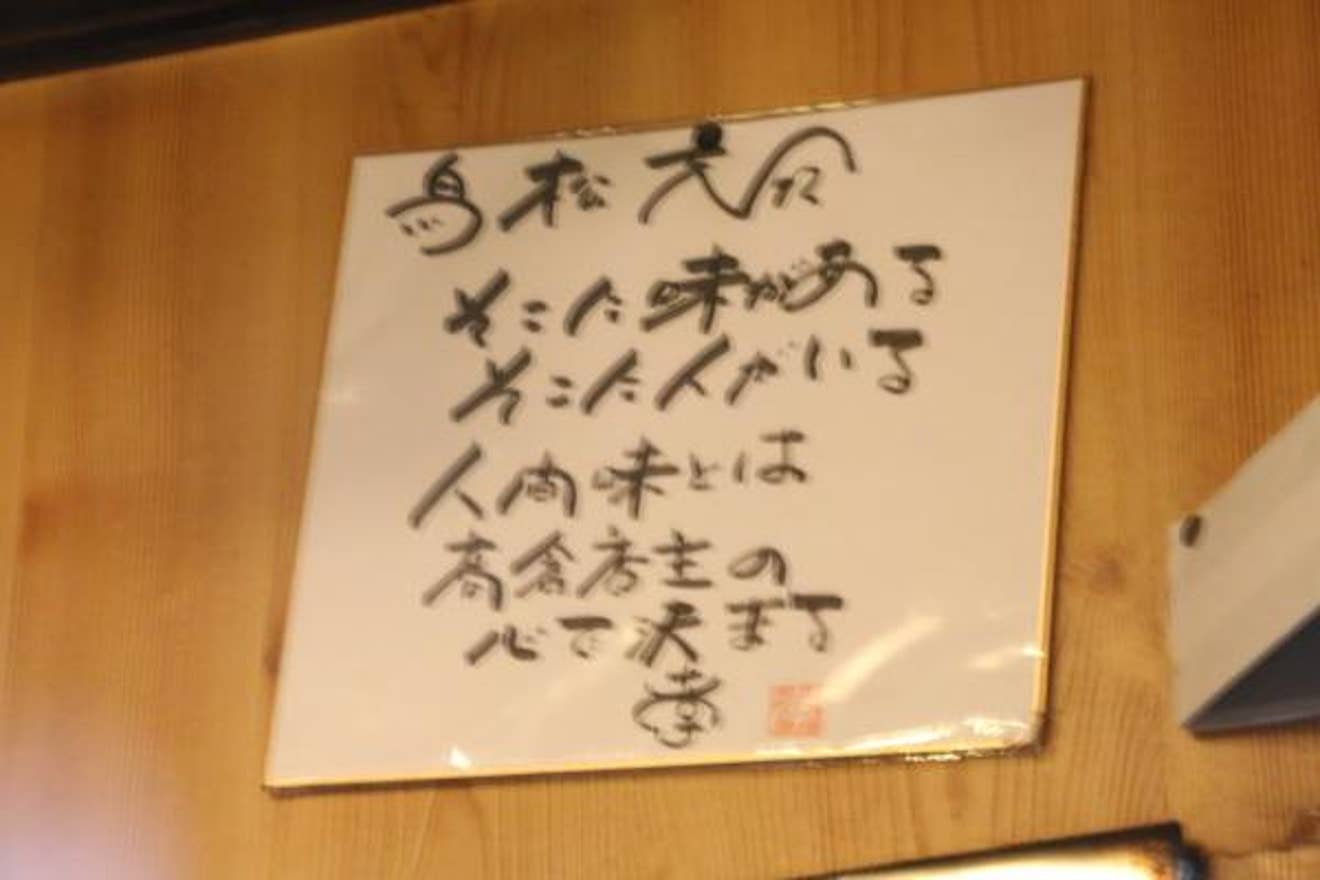 鳥松
そこに味がある
そこに人がいる
人間味とは
高倉店主の
心で決まる